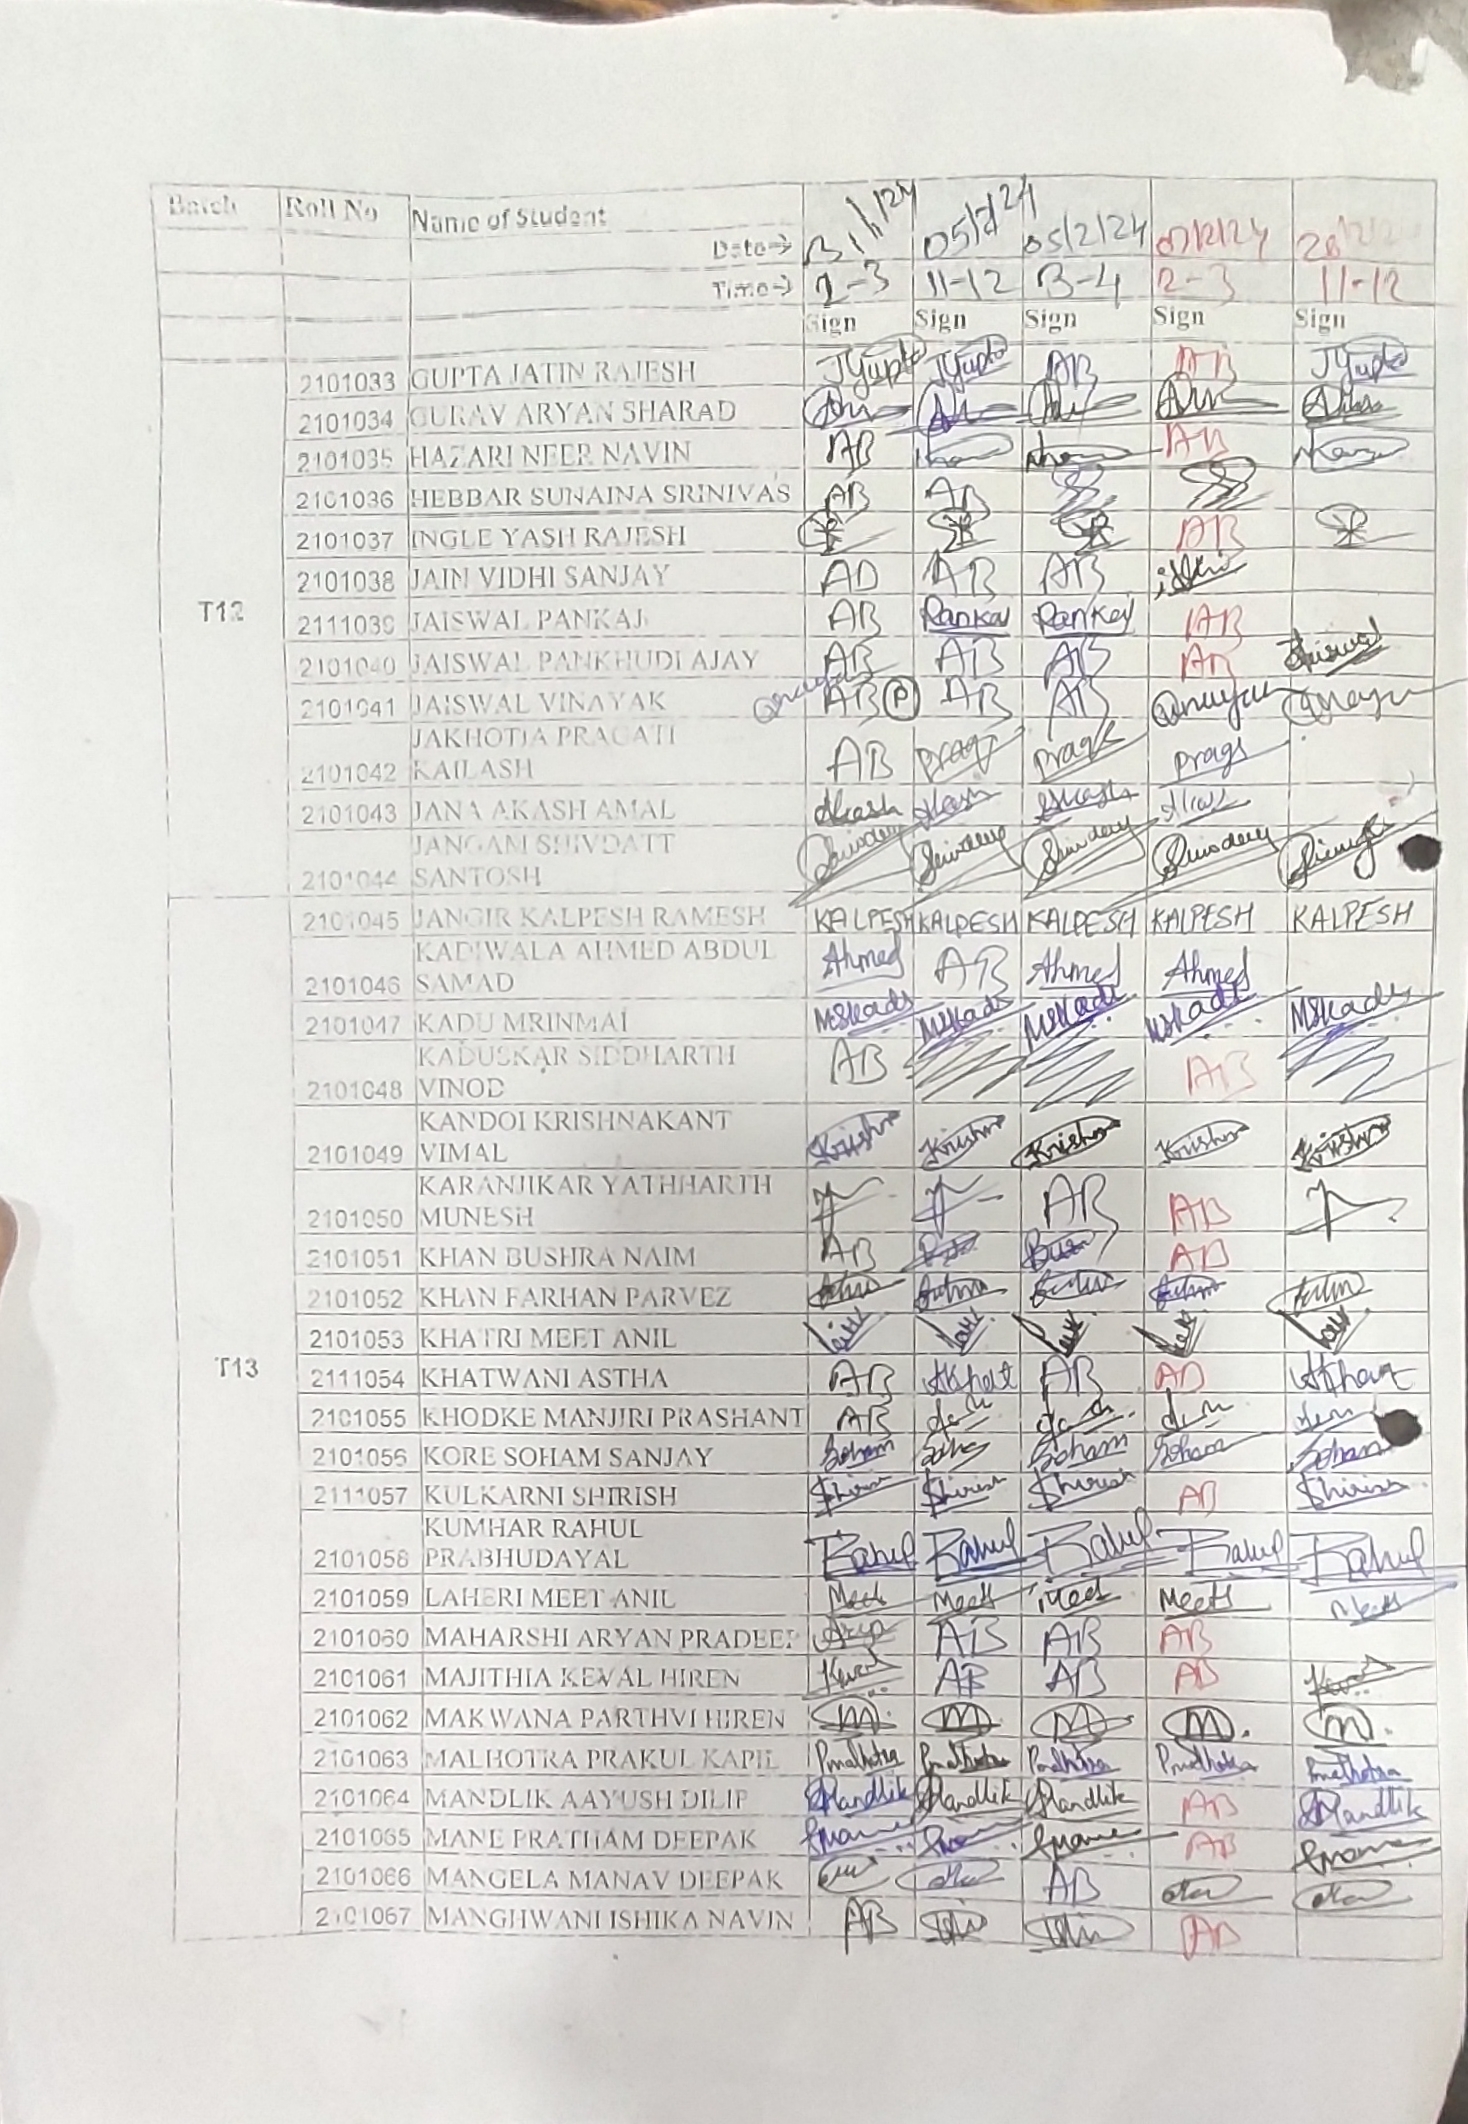 Batch Roll No Name of Student
Date→ 31/1/24 05/2/24 05/2/24 07/2/24 28
Time→ 2-3 11-12 3-4 2-3 11-12
Sign Sign Sign Sign Sign
2101033 GUPTA JATIN RAJESH JGupta JGupta AB AB JGupta
2101034 GURAV ARYAN SHARAD
2101035 HAZARI NEER NAVIN AB AB
2101036 HEBBAR SUNAINA SRINIVAS AB AB
2101037 INGLE YASH RAJESH AB
2101038 JAIN VIDHI SANJAY AB AB AB
T12
2111039 JAISWAL PANKAJ AB Pankaj Pankaj AB
2101040 JAISWAL PANKHUDI AJAY AB AB AB AB Jaiswal
2101041 JAISWAL VINAYAK AB P AB AB
JAKHOTIA PRAGATI
2101042 KAILASH AB
2101043 JANA AKASH AMAL Akash Akash Akash Akash
JANGAM SHIVDATT
2101044 SANTOSH
2101045 JANGIR KALPESH RAMESH KALPESH KALPESH KALPESH KALPESH KALPESH
KADIWALA AHMED ABDUL
2101046 SAMAD Ahmed AB Ahmed Ahmed
2101047 KADU MRINMAI MSKadu MSKadu MSKadu MSKadu MSKadu
KADUSKAR SIDDHARTH
2101048 VINOD AB AB
KANDOI KRISHNAKANT
2101049 VIMAL Krishna Krishna Krishna Krishna Krishna
KARANJIKAR YATHHARTH
2101050 MUNESH AB AB
2101051 KHAN BUSHRA NAIM AB AB
2101052 KHAN FARHAN PARVEZ
2101053 KHATRI MEET ANIL
T13
2111054 KHATWANI ASTHA AB AKhat AB AB AKhat
2101055 KHODKE MANJIRI PRASHANT AB
2101056 KORE SOHAM SANJAY Soham Soham Soham Soham Soham
2111057 KULKARNI SHIRISH Shirish Shirish Shirish AB Shirish
KUMHAR RAHUL
2101058 PRABHUDAYAL Rahul Rahul Rahul Rahul Rahul
2101059 LAHERI MEET ANIL Meet Meet Meet Meet Meet
2101060 MAHARSHI ARYAN PRADEEP AB AB AB
2101061 MAJITHIA KEVAL HIREN Keval AB AB AB Keval
2101062 MAKWANA PARTHVI HIREN M. M M M. M.
2101063 MALHOTRA PRAKUL KAPIL Pmalhotra Pmalhotra Pmalhotra Pmalhotra Pmalhotra
2101064 MANDLIK AAYUSH DILIP AMandlik AMandlik AMandlik AB AMandlik
2101065 MANE PRATHAM DEEPAK AB
2101066 MANGELA MANAV DEEPAK AB
2101067 MANGHWANI ISHIKA NAVIN AB AB